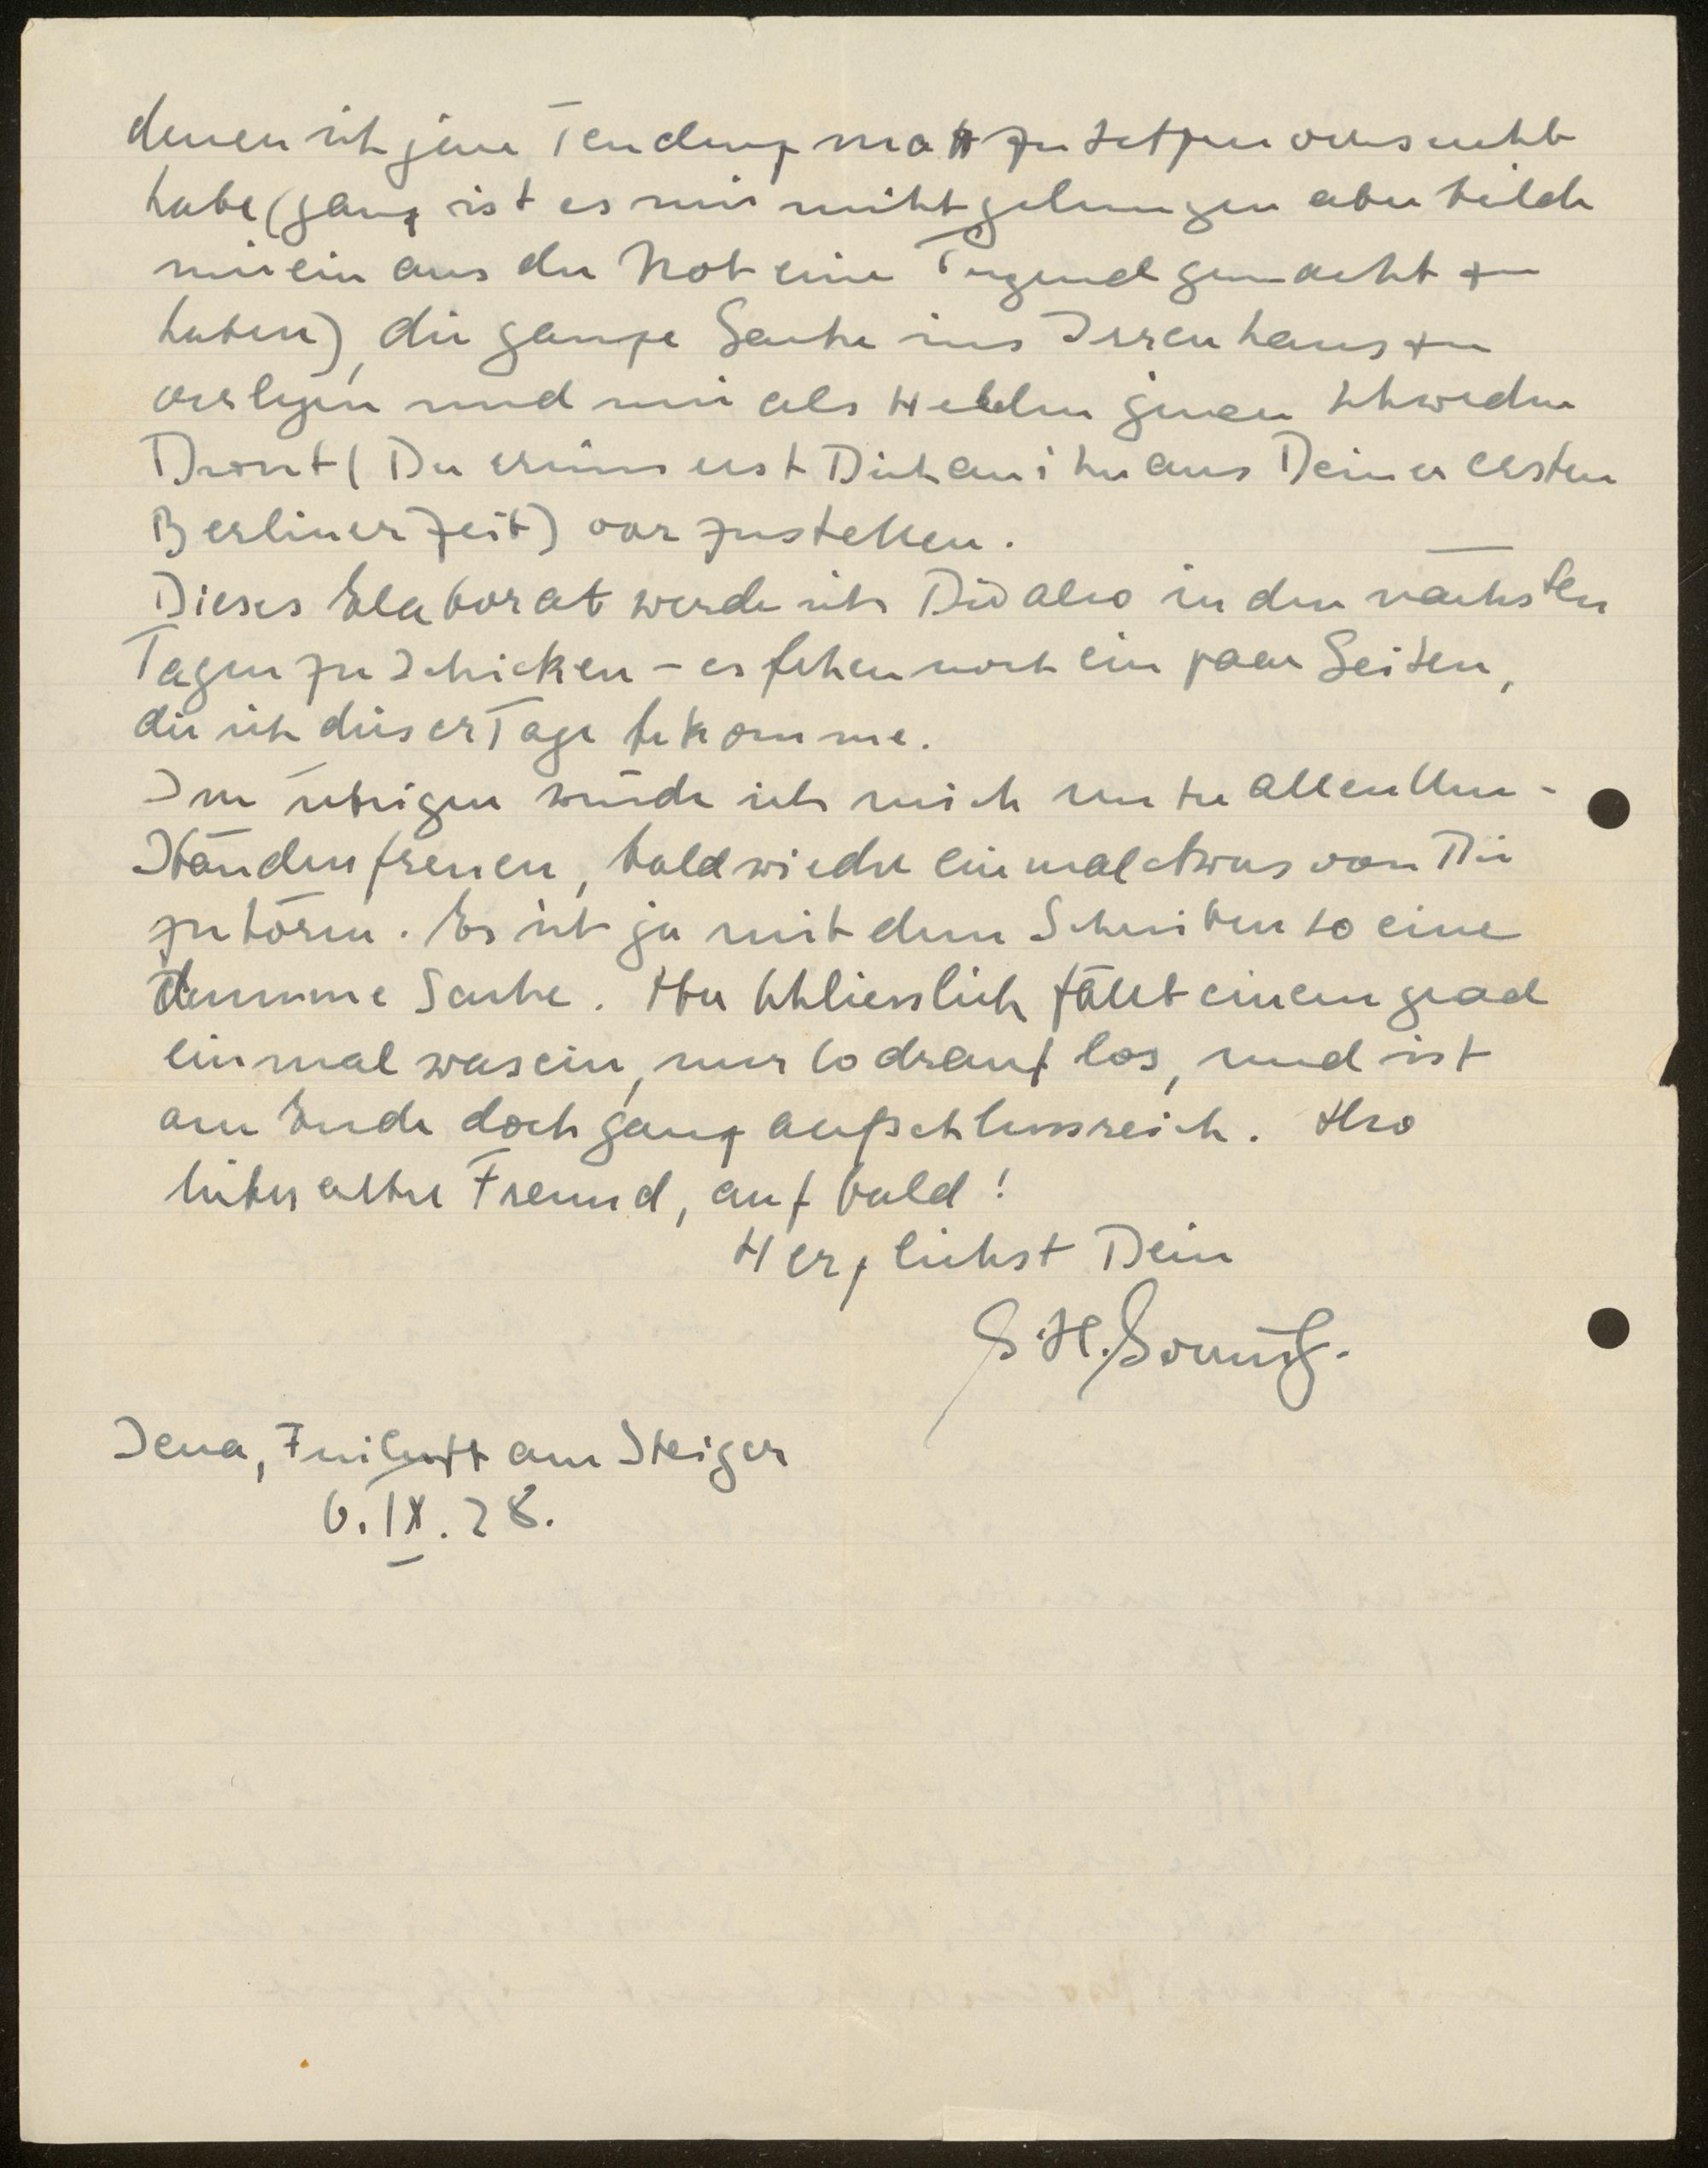 denen ich jene Tendenz matt zu setzen versucht
habe (ganz ist es mir nicht gelungen aber bilde
mir ein aus der Not eine Tugend gemacht zu
haben), die ganze Sache ins Irrenhaus zu
verlegen und mir als Helden jenen Schweden
(Du erinnerst Dich an ihn aus Deiner ersten
Berliner Zeit) vorzustellen.
Dieses Elaborat werde ich Dir also in den nächsten
Tagen zuschicken – es fehlen noch ein paar Seiten,
die ich dieser Tage bekomme.
Im übrigen würde ich mich unter allen Um-
ständen freuen, bald wieder einmal etwas von Dir
zu hören. Es ist ja mit dem Schreiben so eine
dumme Sache. Aber schliesslich fällt einem grad
einmal was ein, nur so drauf los, und ist
am Ende doch ganz aufschlussreich. Also
lieber alter Freund, auf bald!
Herzlichst Dein
S. H.
Jena, Freiluft am Steiger
6. IX. 28.